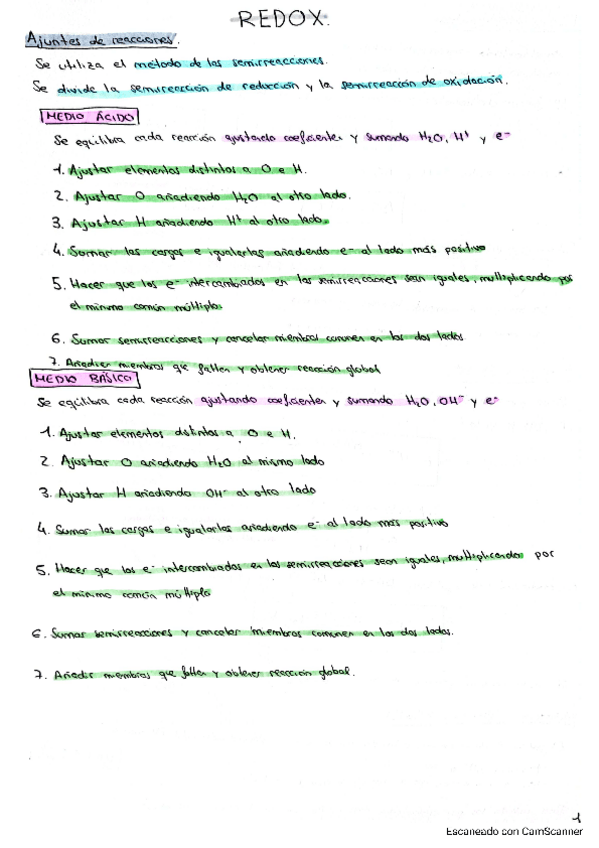 REDOX.
Ajuntes de reacciones.
Se utiliza el método de las semirreacciones.
Se divide la semirreacción de reducción y la semirreacción de oxidación.
MEDIO ÁCIDO
Se equilibra cada reacción ajustando coeficientes y sumando H₂O, H⁺ y e⁻
1. Ajustar elementos distintos a O e H.
2. Ajustar O añadiendo H₂O al otro lado.
3. Ajustar H añadiendo H⁺ al otro lado.
4. Sumar las cargas e igualarlas añadiendo e⁻ al lado más positivo
5. Hacer que los e⁻ intercambiados en las semirreacciones sean iguales, multiplicando por
el mínimo común múltiplo.
6. Sumar semirreacciones y cancelar miembros comunes en los dos lados
7. Añadir miembros que falten y obtener reacción global
MEDIO BÁSICO
Se equilibra cada reacción ajustando coeficientes y sumando H₂O, OH⁻ y e⁻
1. Ajustar elementos distintos a O e H.
2. Ajustar O añadiendo H₂O al mismo lado
3. Ajustar H añadiendo OH⁻ al otro lado
4. Sumar las cargas e igualarlas añadiendo e⁻ al lado más positivo
5. Hacer que los e⁻ intercambiados en las semirreacciones sean iguales, multiplicando por
el mínimo común múltiplo
6. Sumar semirreacciones y cancelar miembros comunes en los dos lados.
7. Añadir miembros que falten y obtener reacción global.
1
Escaneado con CamScanner